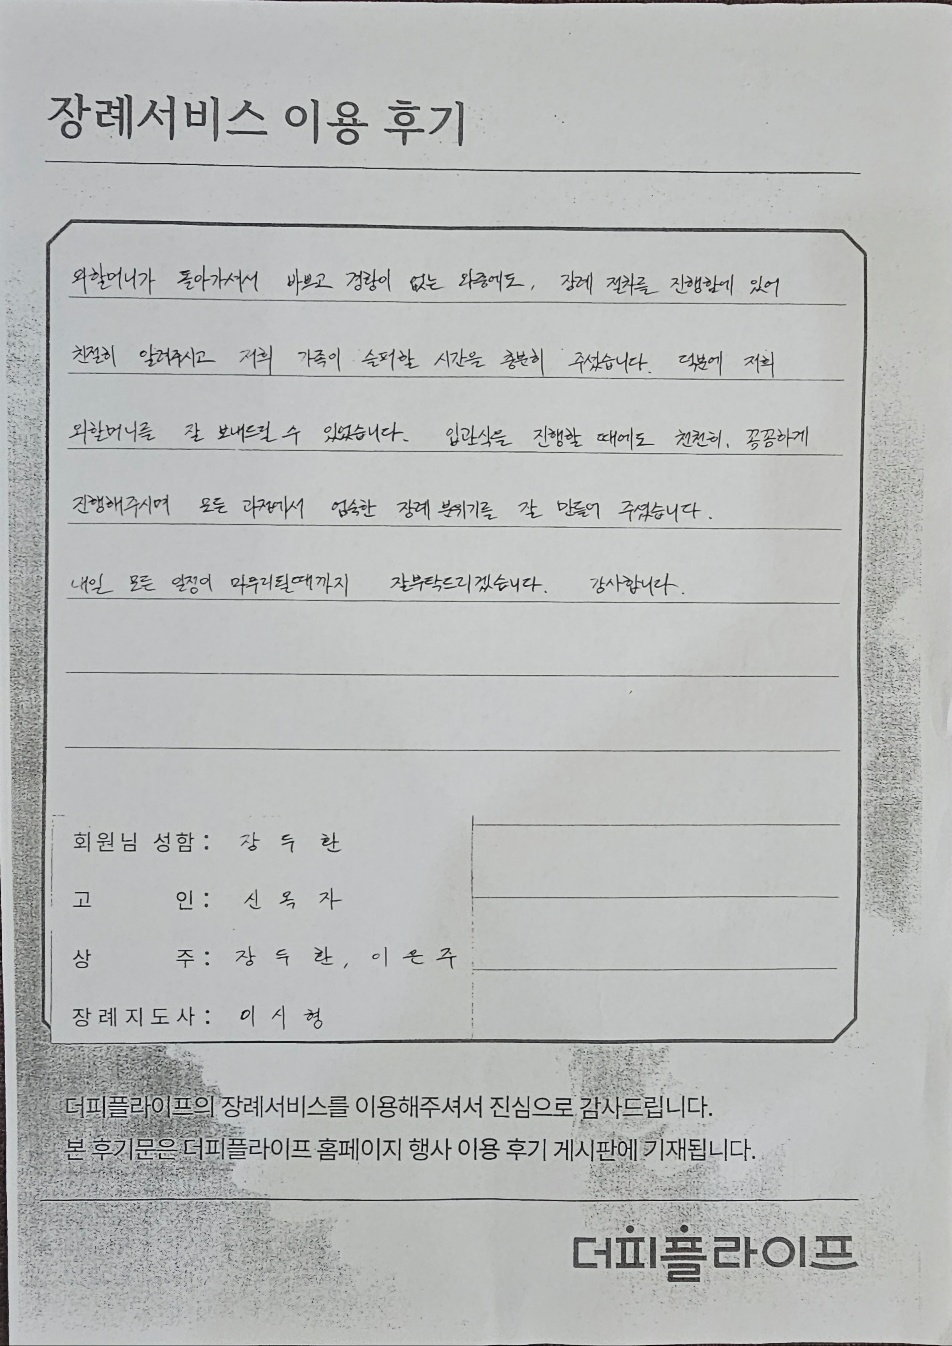 장례서비스 이용 후기
외할머니가 돌아가셔서 바쁘고 경황이 없는 와중에도, 장례 절차를 진행함에 있어
친절히 알려주시고 저희 가족이 슬퍼할 시간을 충분히 주셨습니다. 덕분에 저희
외할머니를 잘 보내드릴 수 있었습니다. 입관식을 진행할 때에도 천천히, 꼼꼼하게
진행해주시며 모든 과정에서 엄숙한 장례 분위기를 잘 만들어 주셨습니다.
내일 모든 일정이 마무리될때까지 잘부탁드리겠습니다. 감사합니다.
회원님 성함 : 장 두 환
고 인 : 신 옥 자
상 주 : 장 두 환, 이 은 주
장례지도사 : 이 시 형
더피플라이프의 장례서비스를 이용해주셔서 진심으로 감사드립니다.
본 후기문은 더피플라이프 홈페이지 행사 이용 후기 게시판에 기재됩니다.
더피플라이프